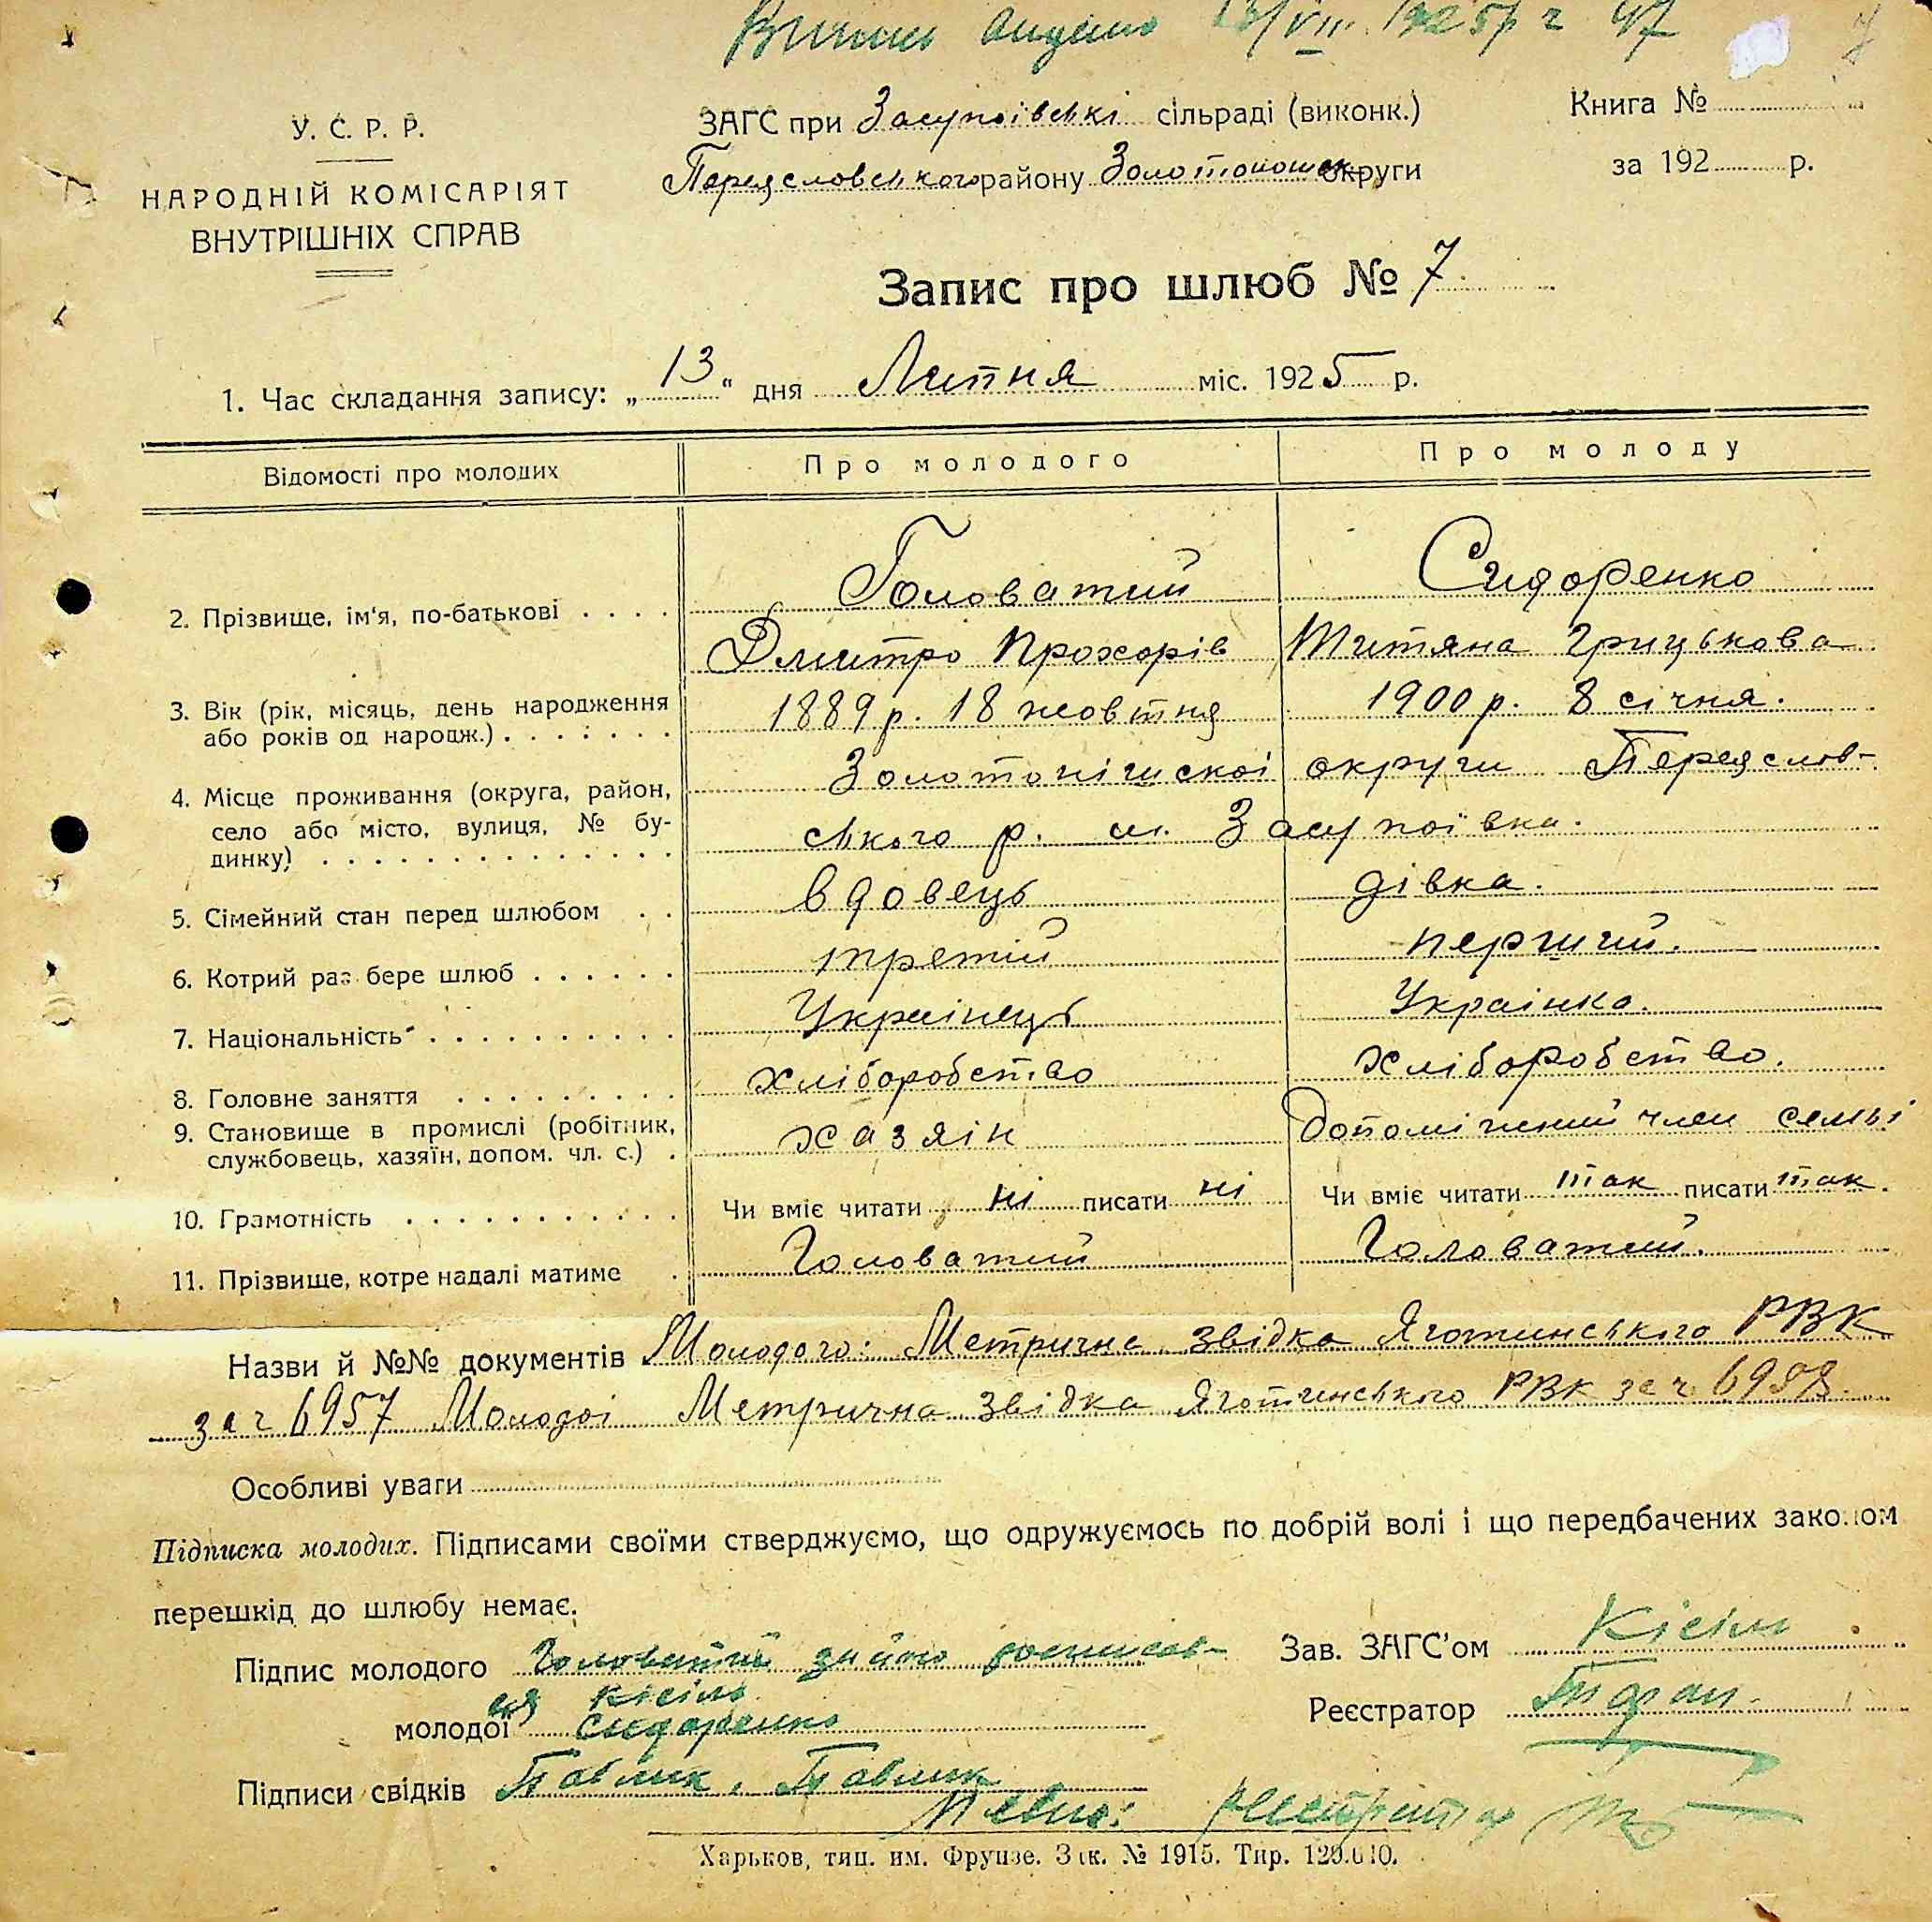 1925р 47
У. С. Р. Р.
НАРОДНІЙ КОМІСАРІЯТ
ВНУТРІШНІХ СПРАВ
ЗАГС при Засупоівські сільраді (виконк.)
Переяславського району Золотоношськ округи
Книга №
за 192 р.
Запис про шлюб № 7
1. Час складання запису: „13“ дня Липня міс. 1925 р.
Відомості про молодих Про молодого Про молоду
2. Прізвище, ім'я, по-батькові Головатий Сидоренко
Дмитро Прохорів Титяна Грицькова
3. Вік (рік, місяць, день народження або років од народж.) 1889 р. 18 жовтня 1900 р. 8 січня.
4. Місце проживання (округа, район, Золотонішскоі округи Переяслов-
село або місто, вулиця, № бу-динку) ського р. с. Засупоівка.
5. Сімейний стан перед шлюбом вдовець дівка.
6. Котрий раз бере шлюб третій перший.
7. Національність Украінець Украінка.
8. Головне заняття хліборобство хліборобство.
9. Становище в промислі (робітник, службовець, хазяїн, допом. чл. с.) хазяін Допоміжний член семьі
10. Грамотність Чи вміє читати ні писати ні Чи вміє читати так писати так.
11. Прізвище, котре надалі матиме Головатий Головатий.
Назви й №№ документів Молодого: Метрична звідка Яготинського РВК
за ч 6957 Молодоі Метрична звідка Яготинського РВК за ч. 6958.
Особливі уваги
Підписка молодих. Підписами своїми стверджуємо, що одружуємось по добрій волі і що передбачених законом
перешкід до шлюбу немає.
Підпис молодого Головатий
ся Кісіль
молодої Сидоренко
Зав. ЗАГС'ом Кісіль
Реєстратор
Підписи свідків Павлик, Павлик
Певно: реєстратор
Харьков, тип. им. Фрунзе. Зак. № 1915. Тир. 120.000.